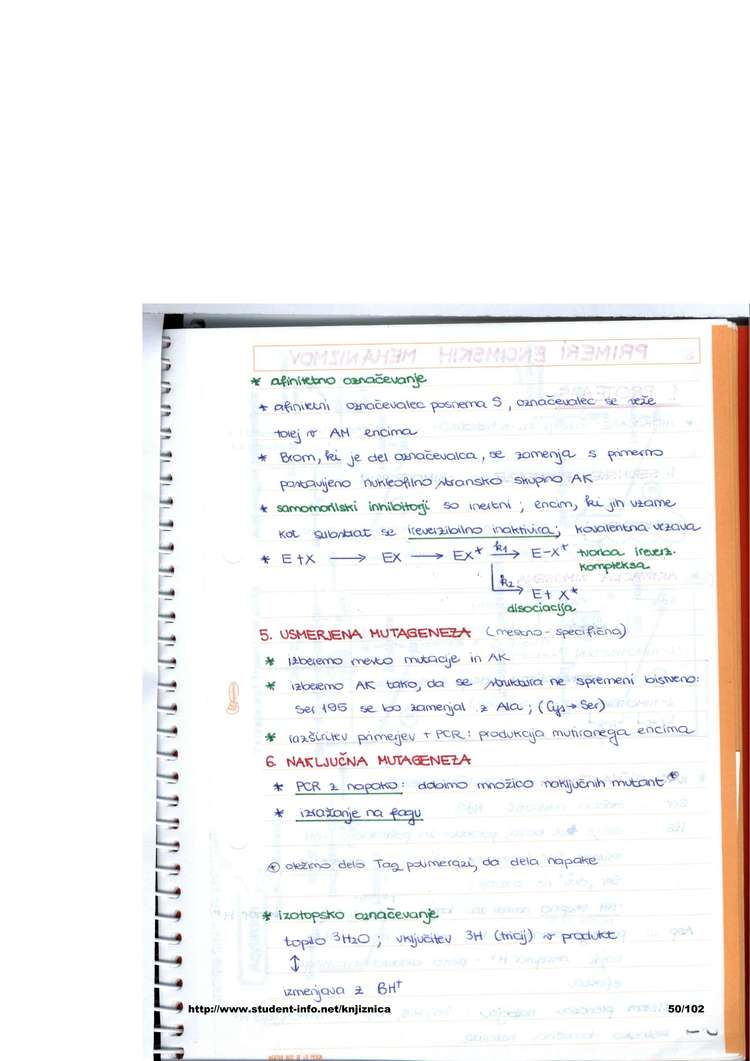 * afinitetno označevanje
* afinitetni označevalec posnema S, označevalec se veže
torej v AM encima
* Brom, ki je del označevalca, se zamenja s primerno
postavljeno nukleofilno stransko skupno AK
* samomorilski inhibitorji so inertni; encim, ki jih vzame
kot substrat se ireverzibilno inaktivira; kovalentna vezava
* E+X → EX → EX* k1→ E-X* tvorba ireverz.
kompleksa
k2→ E+ X*
disociacija
5. USMERJENA MUTAGENEZA (mestno-specifična)
* izberemo mesto mutacije in AK
* izberemo AK tako, da se struktura ne spremeni bistveno:
Ser 195 se bo zamenjal z Ala; (Cys→Ser)
* razširitev primerjev + PCR: produkcija mutiranega encima
6. NAKLJUČNA MUTAGENEZA
* PCR z napako: dobimo množico naključnih mutant ⊕
* izražanje na fagu
⊕ otežimo delo Taq polimerazi, da dela napake
* izotopsko označevanje
topilo ³H₂O; vključitev 3H (tricij) v produkt
↕
izmenjava z BH⁺
http://www.student-info.net/knjiznica 50/102